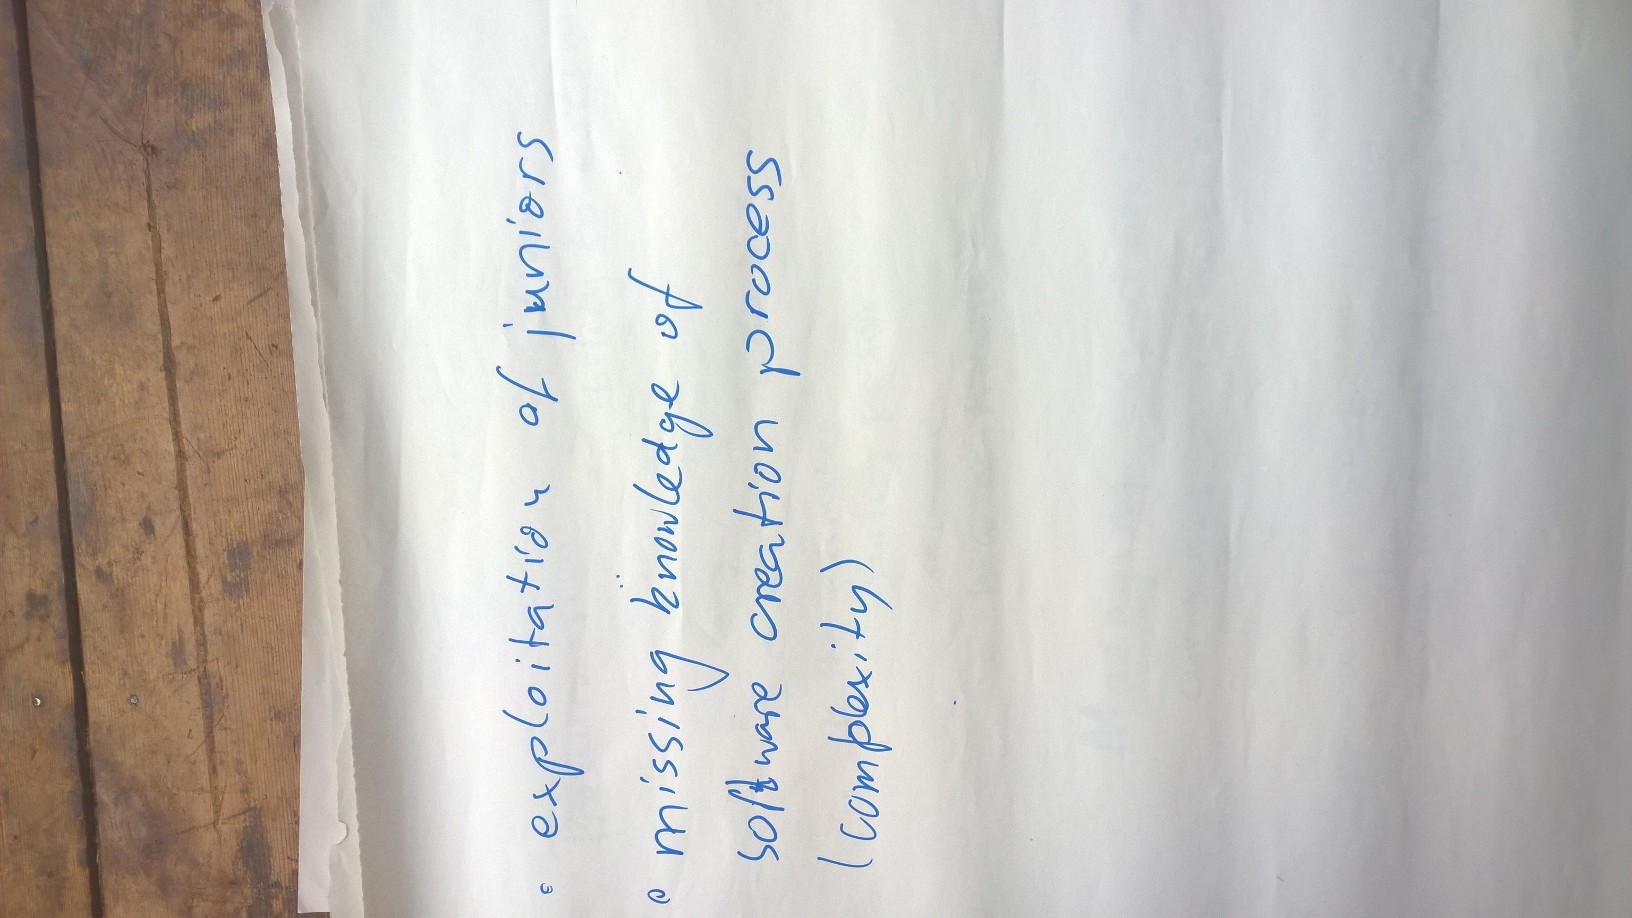 • exploitation of juniors
• missing knowledge of
software creation process
(complexity)